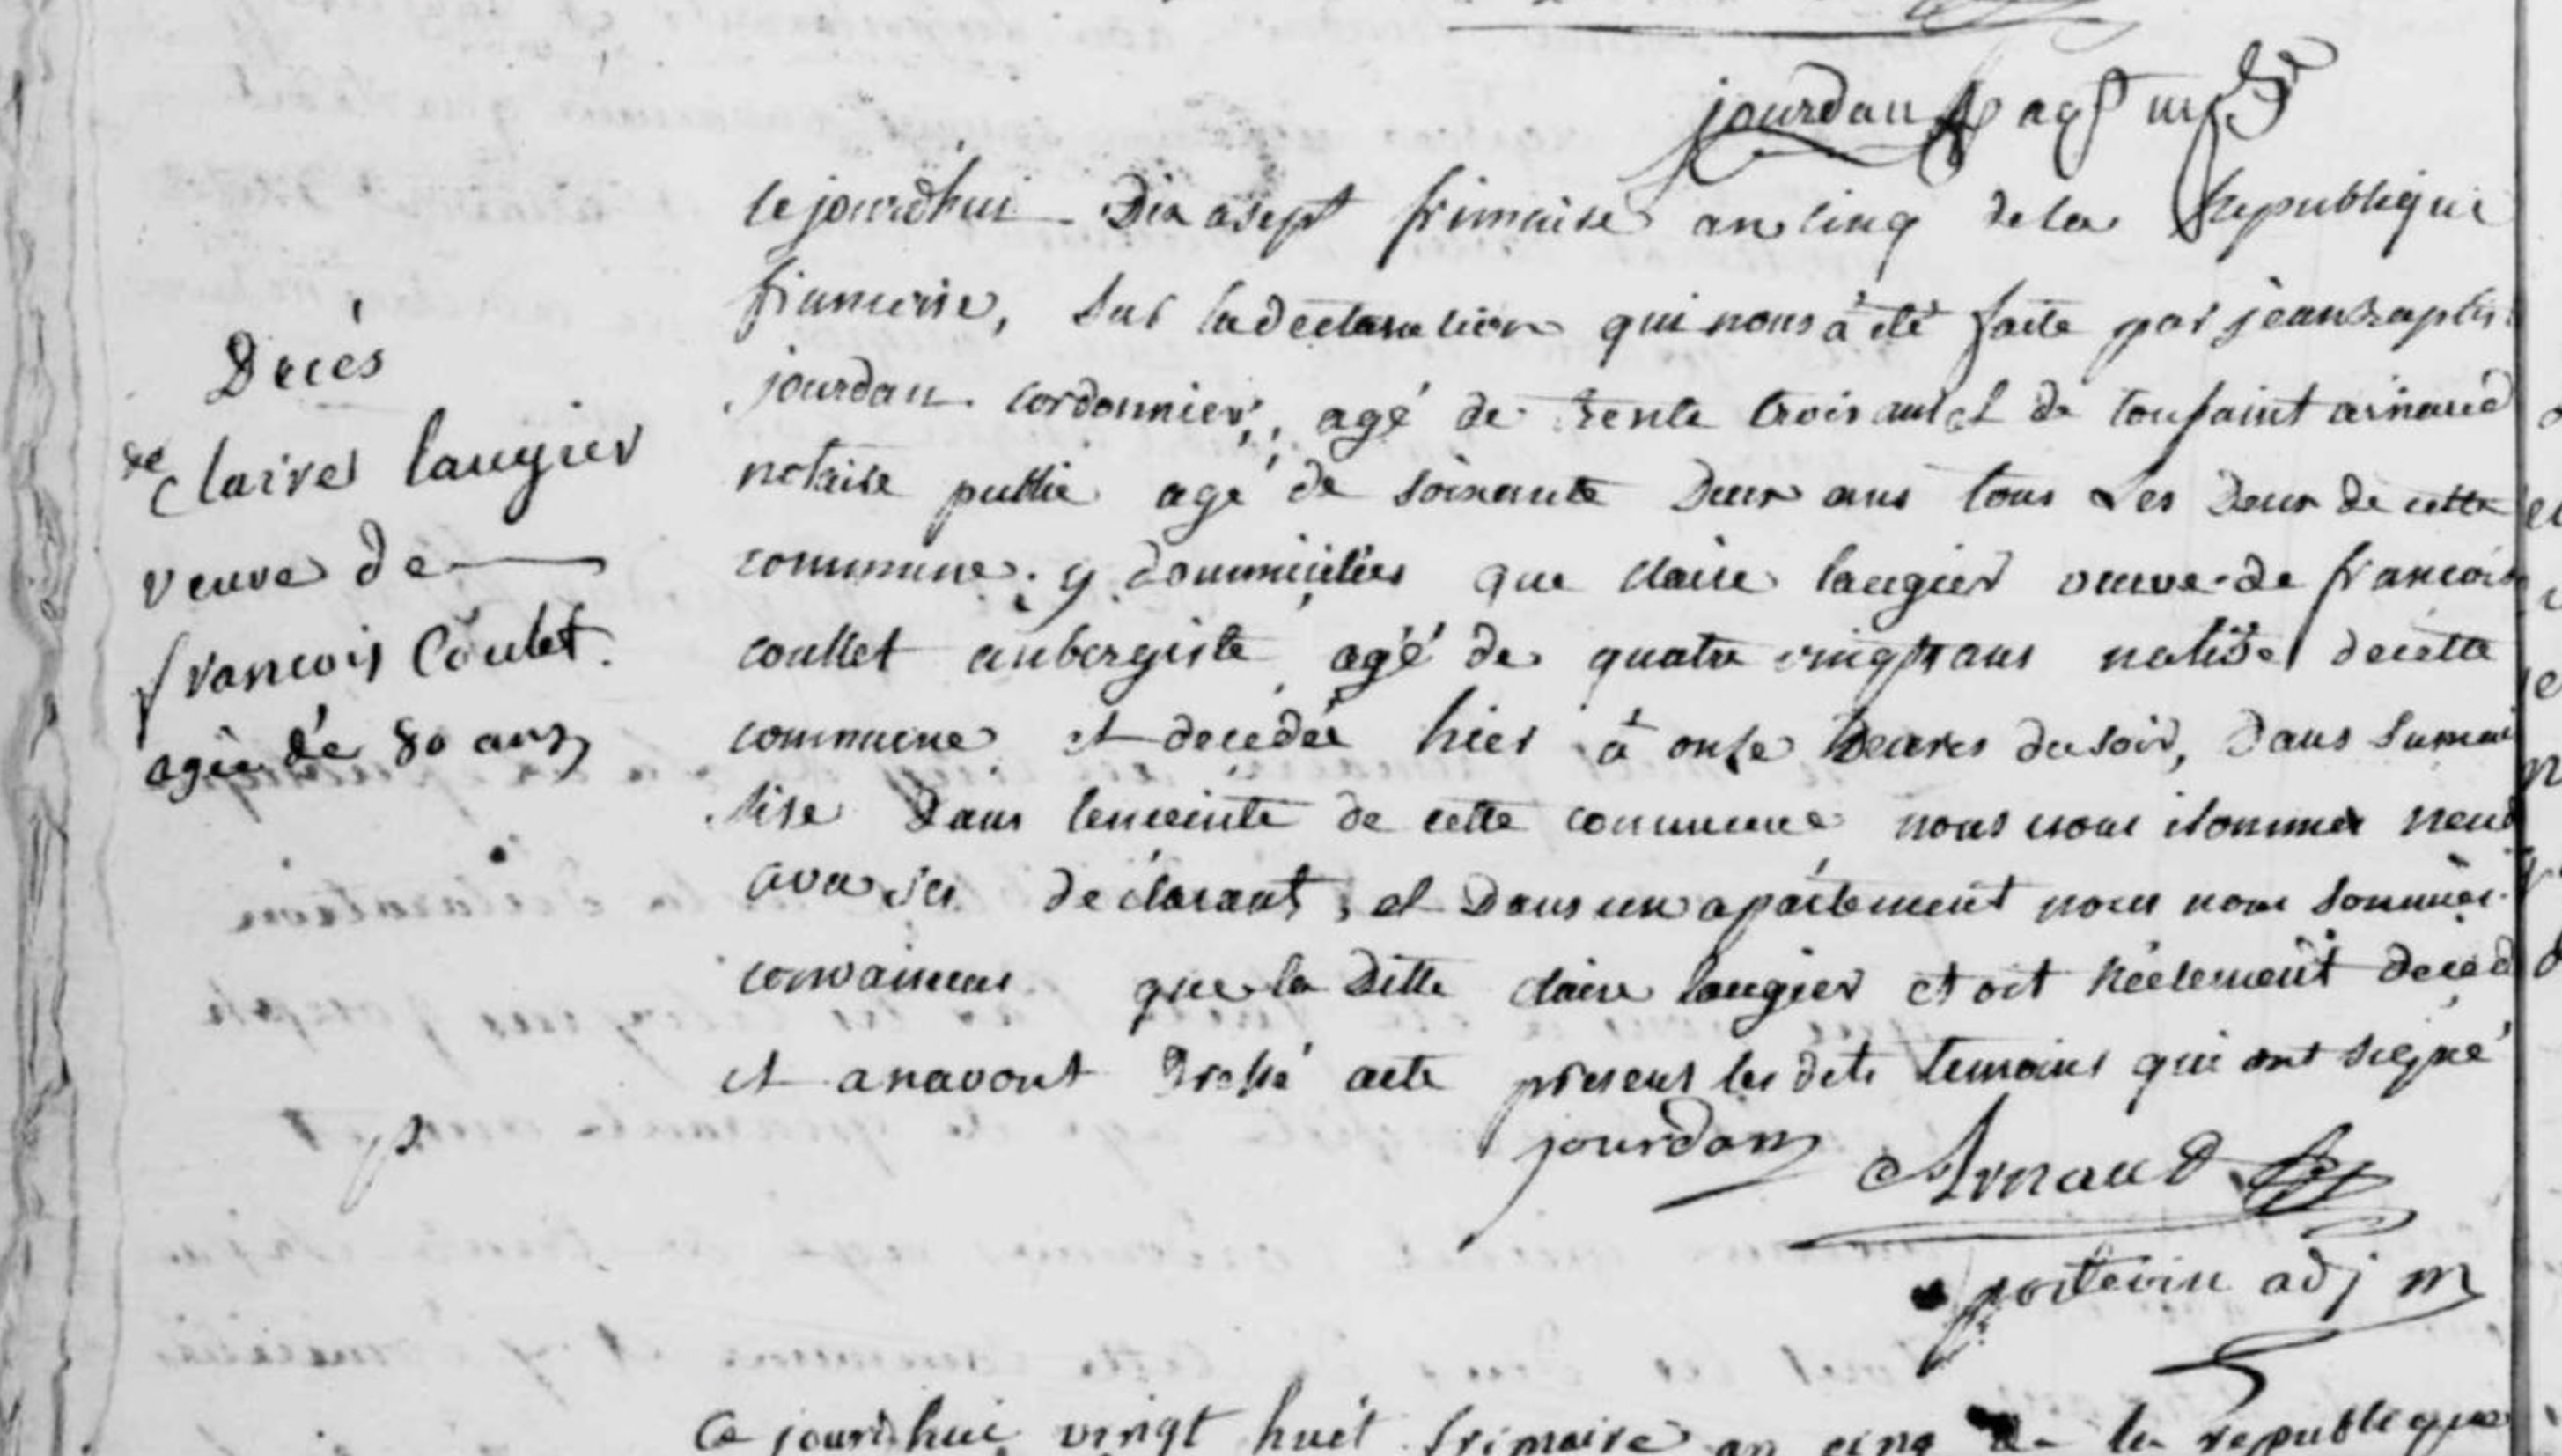 jourdan agt mpal
Décés
de Claire laugier
veuve de
francois Coulet.
agée de 80 ans
Cejourdhui Dix asept frimaire an cinq de la Republique
francoise, sur la declaration qui nous à été faite par jean baptis
jourdan cordonnier, agé de trente trois ans et de toussaint arnaud
notaire public agé de soixante Deux ans tous Les Deux de cette
commune y dommiciliés que claire laugier veuve de francois
coullet aubergiste agé de quatre vingts ans native de cette
commune et decedée hier à onse heures du soir, Dans sa mai
sise Dans lenceinte de cette commune nous nous sommes
avec ses déclarant, et Dans un apartement nous nous sommes
convaincus que la Ditte claire laugier etoit réelement deced
et anavont Dressé acte present les dits temoins qui ont signé
jourdan Arnaud
portevin adj m
Ce jourdhui vingt huit frimaire an cinq de la republique